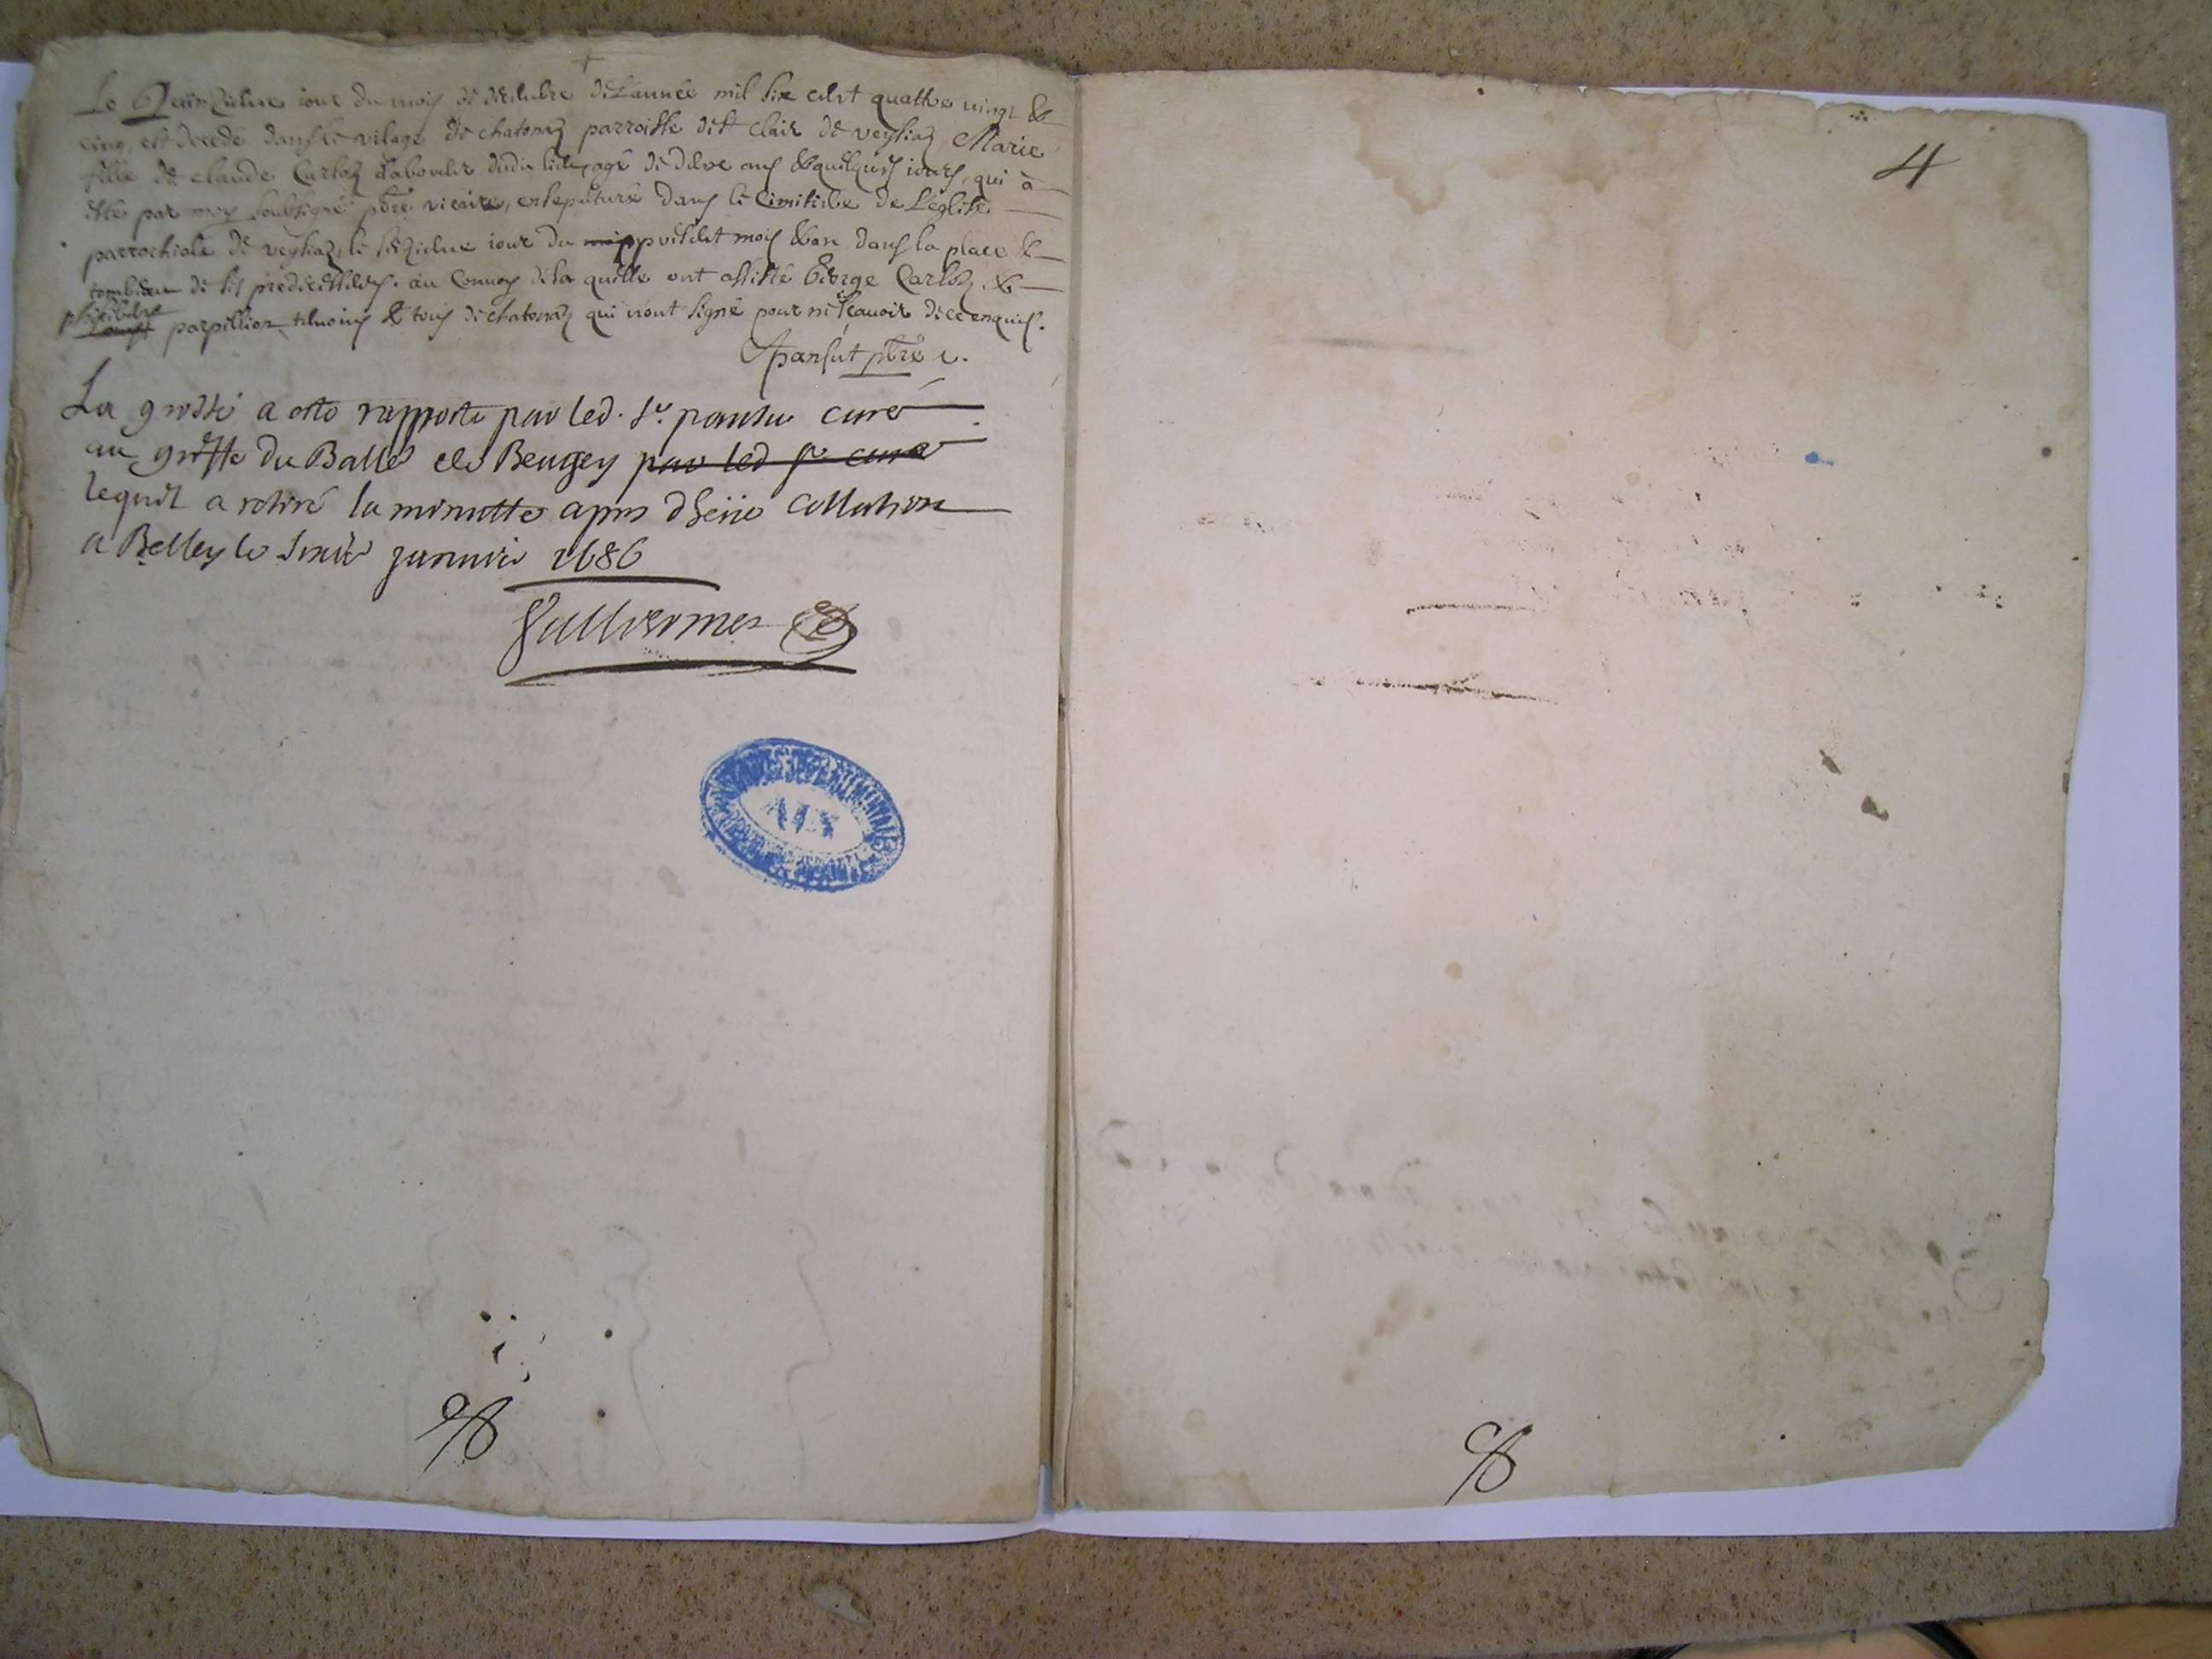 Le Quinzieme iour du mois de decembre de L'année mil six cent quattre vingt &
cinq, est decedé dans le vilage de chatonaz parroisse de st clair de veyziaz, Marie
fille de claude Carloz laboureur dudit lieu, agé de deux ans & quelques iours, qui à
esté par moy soubsigné pbre vicaire, ensepulturé dans le Cimitiere de L'eglise
parrochiale de veyziaz, le seizieme iour du mois present mois & an dans la place &
tombeau de ses predecesseurs. au Convoy de la quelle ont assisté George Carloz &
parpillion temoins & tous de chatonaz qui n'ont signé pour ne sçavoir de ce enquis.
pansut pbre v.
La grosse a esté rapporté par led. sr. pansu curé
au greffe du Balle de Beugey par led sr curé
lequel a retiré la minutte apres dheüe Collation
a Belley le janvier 1686
AIN
4